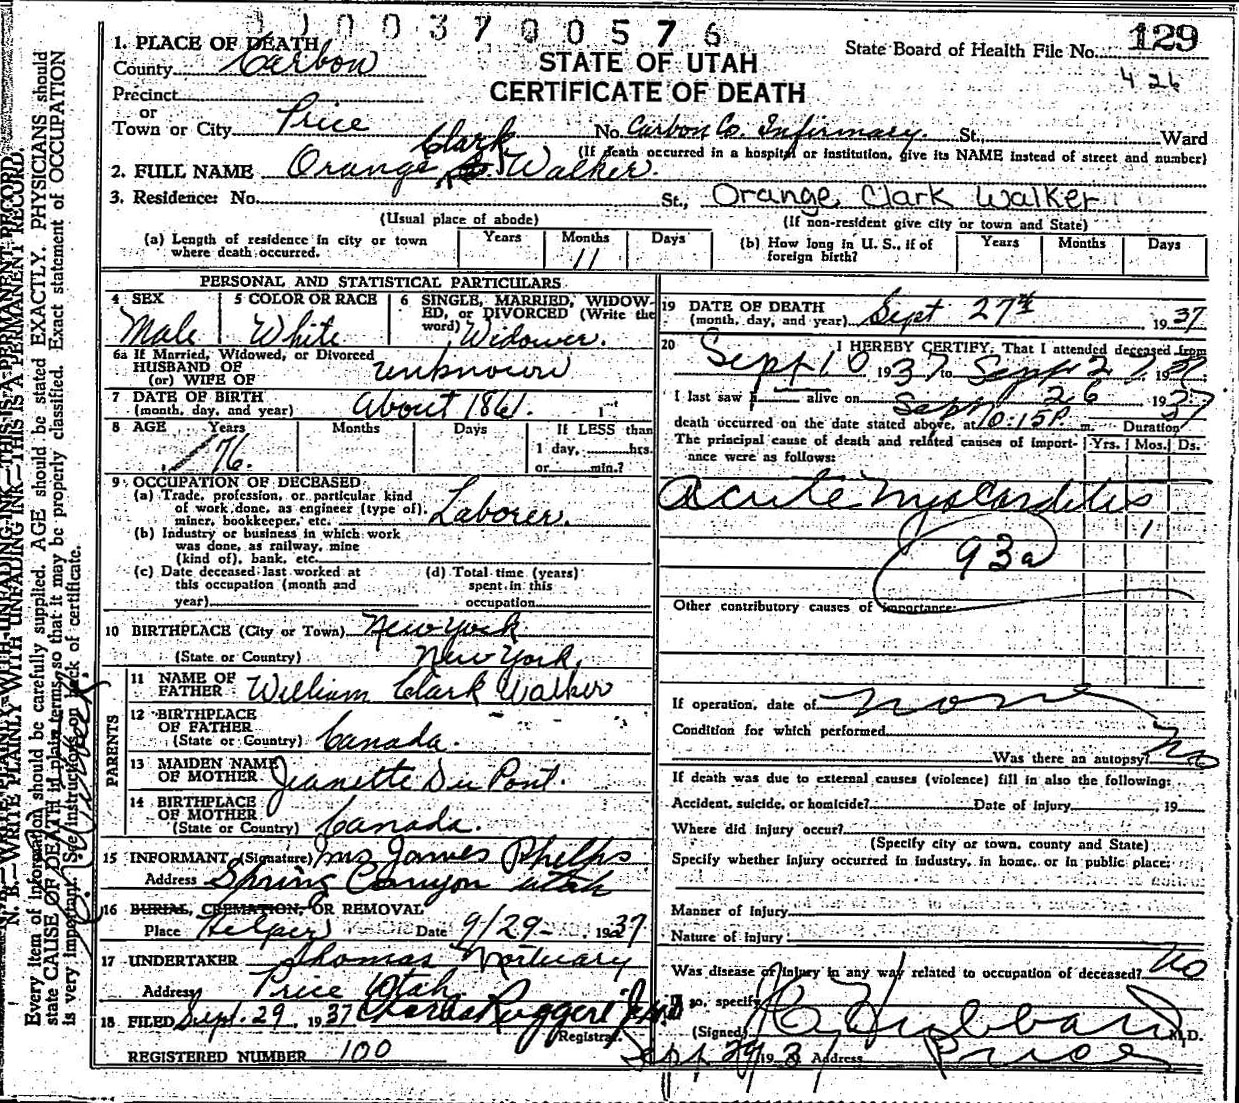 1 0 0 3 7 0 0 5 7 6
State Board of Health File No. 129
426
STATE OF UTAH
CERTIFICATE OF DEATH
1. PLACE OF DEATH
County Carbon
Precinct
or
Town or City Price No. Carbon Co. Infirmary. St. Ward
(If death occurred in a hospital or institution, give its NAME instead of street and number)
2. FULL NAME Orange Clark Walker.
3. Residence: No. St., Orange Clark Walker
(Usual place of abode) (If non-resident give city or town and State)
(a) Length of residence in city or town where death occurred. Years Months 11 Days
(b) How long in U. S., if of foreign birth? Years Months Days
PERSONAL AND STATISTICAL PARTICULARS
4 SEX Male
5 COLOR OR RACE White
6 SINGLE, MARRIED, WIDOWED, or DIVORCED (Write the word) Widower.
6a If Married, Widowed, or Divorced
HUSBAND OF
(or) WIFE OF unknown
7 DATE OF BIRTH
(month, day, and year) About 1861. 1
8 AGE Years 76. Months Days If LESS than
1 day, hrs.
or min.?
9 OCCUPATION OF DECEASED
(a) Trade, profession, or particular kind
of work done, as engineer (type of),
miner, bookkeeper, etc. Laborer.
(b) Industry or business in which work
was done, as railway, mine
(kind of), bank, etc.
(c) Date deceased last worked at
this occupation (month and
year)
(d) Total time (years)
spent in this
occupation
10 BIRTHPLACE (City or Town) New York
(State or Country) New York.
PARENTS
11 NAME OF
FATHER William Clark Walker
12 BIRTHPLACE
OF FATHER
(State or Country) Canada.
13 MAIDEN NAME
OF MOTHER Jeanette Du Pont.
14 BIRTHPLACE
OF MOTHER
(State or Country) Canada.
15 INFORMANT (Signature) Mrs James Phelps
Address Spring Canyon Utah
16 BURIAL, CREMATION, OR REMOVAL
Place Helper Date 9/29- 1937
17 UNDERTAKER Thomas Mortuary
Address Price Utah
18 FILED Sept. 29, 1937 Charles Ruggeri Jr. M.D.
Registrar.
REGISTERED NUMBER 100
19 DATE OF DEATH
(month, day, and year) Sept 27th 1937
20 I HEREBY CERTIFY, That I attended deceased from
Sept 10 1937 to Sept 27 1937
I last saw h alive on Sept 26 1937
death occurred on the date stated above, at 10:15 P. m. Duration
The principal cause of death and related causes of importance were as follows: Yrs. Mos. Ds.
Acute Myocarditis
1
93a
Other contributory causes of importance:
If operation, date of none
Condition for which performed
Was there an autopsy? No
If death was due to external causes (violence) fill in also the following:
Accident, suicide, or homicide? Date of injury , 19
Where did injury occur?
(Specify city or town, county and State)
Specify whether injury occurred in industry, in home, or in public place:
Manner of Injury
Nature of Injury
Was disease or injury in any way related to occupation of deceased? No
If so, specify
(Signed) Hubbard M.D.
Sept 29 1937 Address Price
N. B.—WRITE PLAINLY WITH UNFADING INK—THIS IS A PERMANENT RECORD.
Every item of information should be carefully supplied. AGE should be stated EXACTLY. PHYSICIANS should
state CAUSE OF DEATH in plain terms, so that it may be properly classified. Exact statement of OCCUPATION
is very important. See instructions on back of certificate.